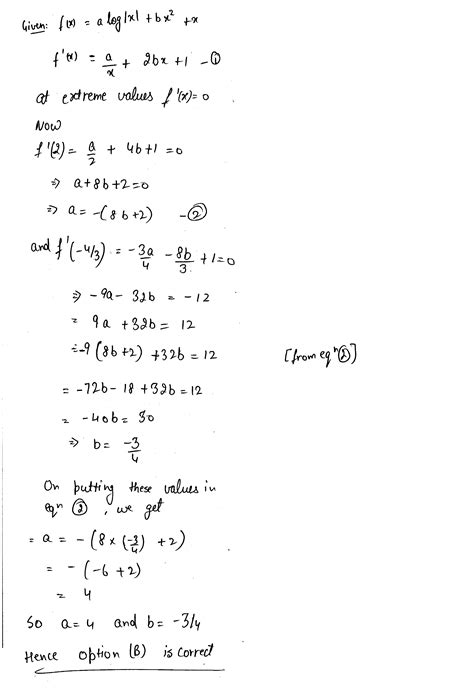 Given: f(x) = a log|x| + bx² + x
f'(x) = a/x + 2bx + 1 - ①
at extreme values f'(x) = 0
Now
f'(2) = a/2 + 4b + 1 = 0
⇒ a + 8b + 2 = 0
⇒ a = -(8b + 2) - ②
and f'(-4/3) = -3a/4 - 8b/3 + 1 = 0
⇒ -9a - 32b = -12
= 9a + 32b = 12
= -9(8b + 2) + 32b = 12 [from eqⁿ ②]
= -72b - 18 + 32b = 12
= -40b = 30
⇒ b = -3/4
On putting these values in
eqⁿ ②, we get
= a = -(8 × (-3/4) + 2)
= -(-6 + 2)
= 4
So a = 4 and b = -3/4
Hence option (B) is correct